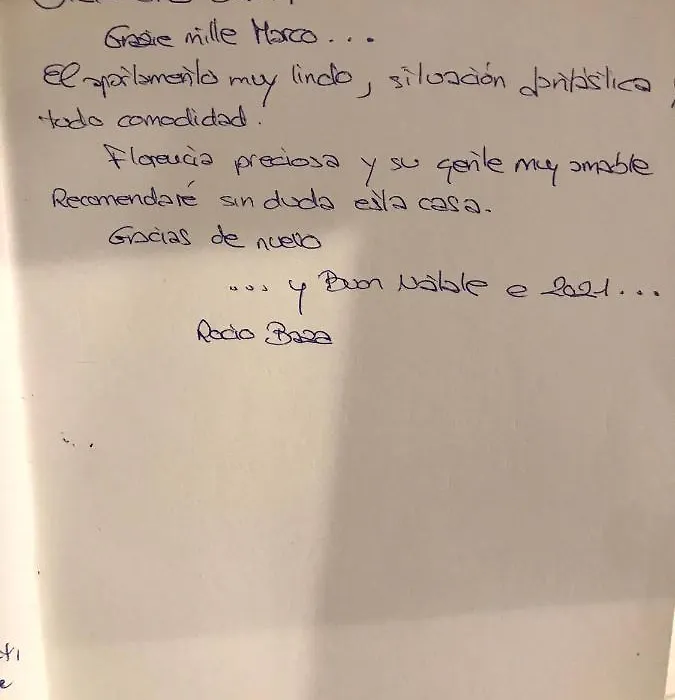 Grazie mille Marco...
El apartamento muy lindo, situación fantástica,
todo comodidad.
Florencia preciosa y su gente muy amable
Recomendaré sin duda esta casa.
Gracias de nuevo
.... y Buon Natale e 2021...
Rocio Baza